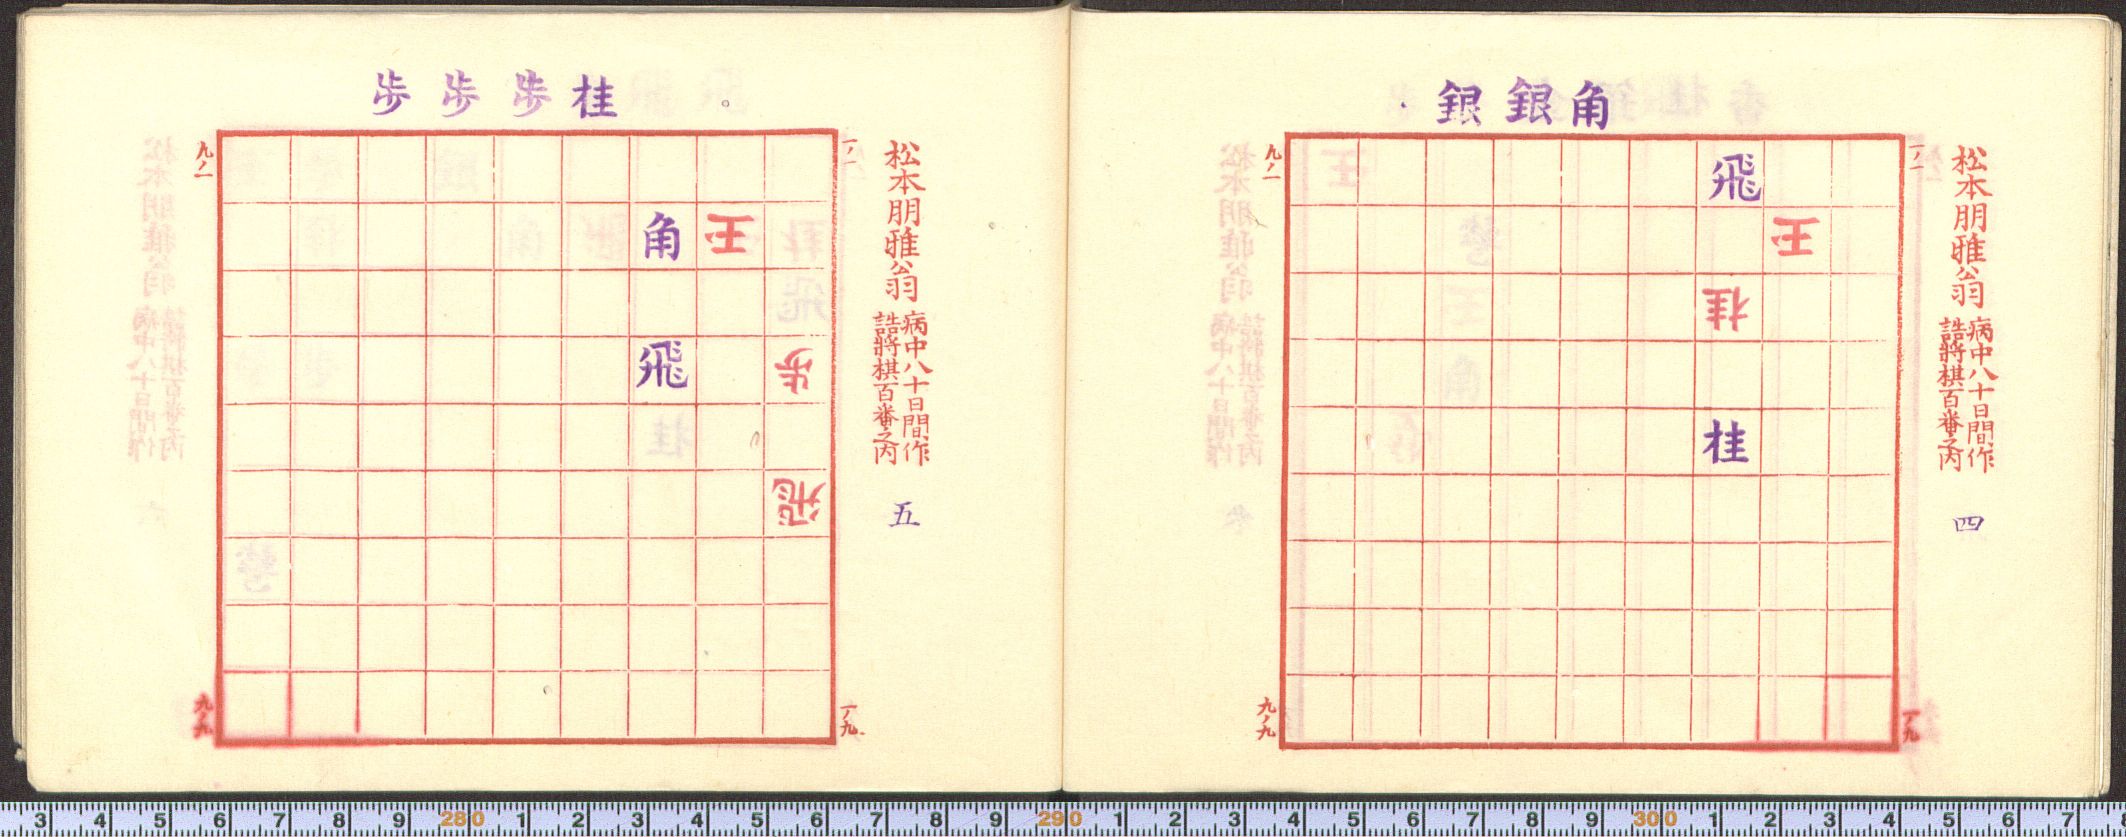 松本朋雅翁
病中八十日間作
詰將棋百番之内
四
角銀銀
一ノ一
九ノ一
飛
王
桂
桂
一ノ九
九ノ九
松本朋雅翁
病中八十日間作
詰將棋百番之内
五
桂歩歩歩
一ノ一
九ノ一
王
角
歩
飛
飛
一ノ九
九ノ九
3 4 5 6 7 8 9 280 1 2 3 4 5 6 7 8 9 290 1 2 3 4 5 6 7 8 9 300 1 2 3 4 5 6 7